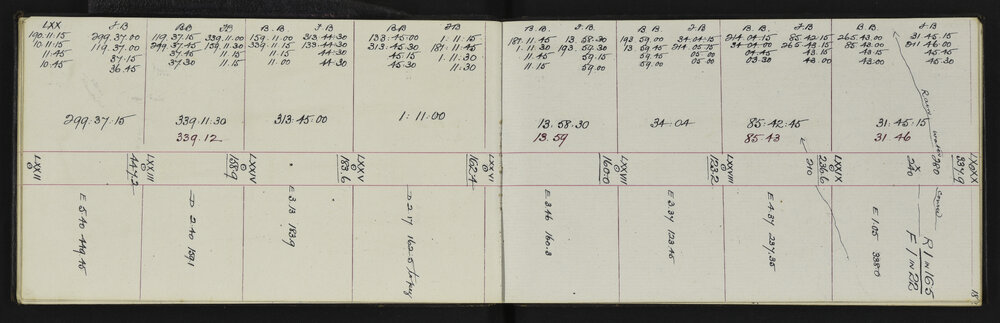 LXX F.B B.B F.B B.B. F.B B.B F.B
190.11.15 299.37.00 119.37.15 339.11.00 159.11.00 313.44.30 133.45.00 1.11.15
10.11.15 119.37.00 299.37.45 159.11.30 339.11.15 133.44.30 313.45.30 181.11.45
11.45 37.15 37.45 11.15 11.15 44.30 45.15 1.11.30
10.45 36.45 37.30 11.15 11.00 44.30 45.30 11.30
299.37.15 339.11.30 313.45.00 1.11.00
339.12
LXXII LXXIII LXXIV LXXV LXXVI
447.2 158.9 183.6 162.4
E 5.40 449.45
D 2.40 159.1
E 3.13 183.9
D 2.17 162.5
B.B. F.B B.B. F.B B.B. F.B B.B. F.B
181.11.45 13.58.30 193.59.00 34.04.15 214.04.15 85.42.15 265.43.00 31.45.15
1.11.30 193.59.30 13.59.15 214.05.15 34.04.00 265.43.30 85.43.00 211.46.00
11.45 59.15 59.00 05.00 04.45 43.15 43.15 45.45
11.15 59.00 59.00 05.00 03.30 43.00 43.00 45.30
13.58.30 34.04 85.42.45 31.45.15
13.59 85.43 31.46
LXXVII LXXVIII LXXX
160.0 123.2 236.6 337.9
210 240 280
E 3.46 160.3
E 3.37 123.45
E 4.37 237.35
E 1.05 338.0
R 1 in 165
F 1 in 22
18